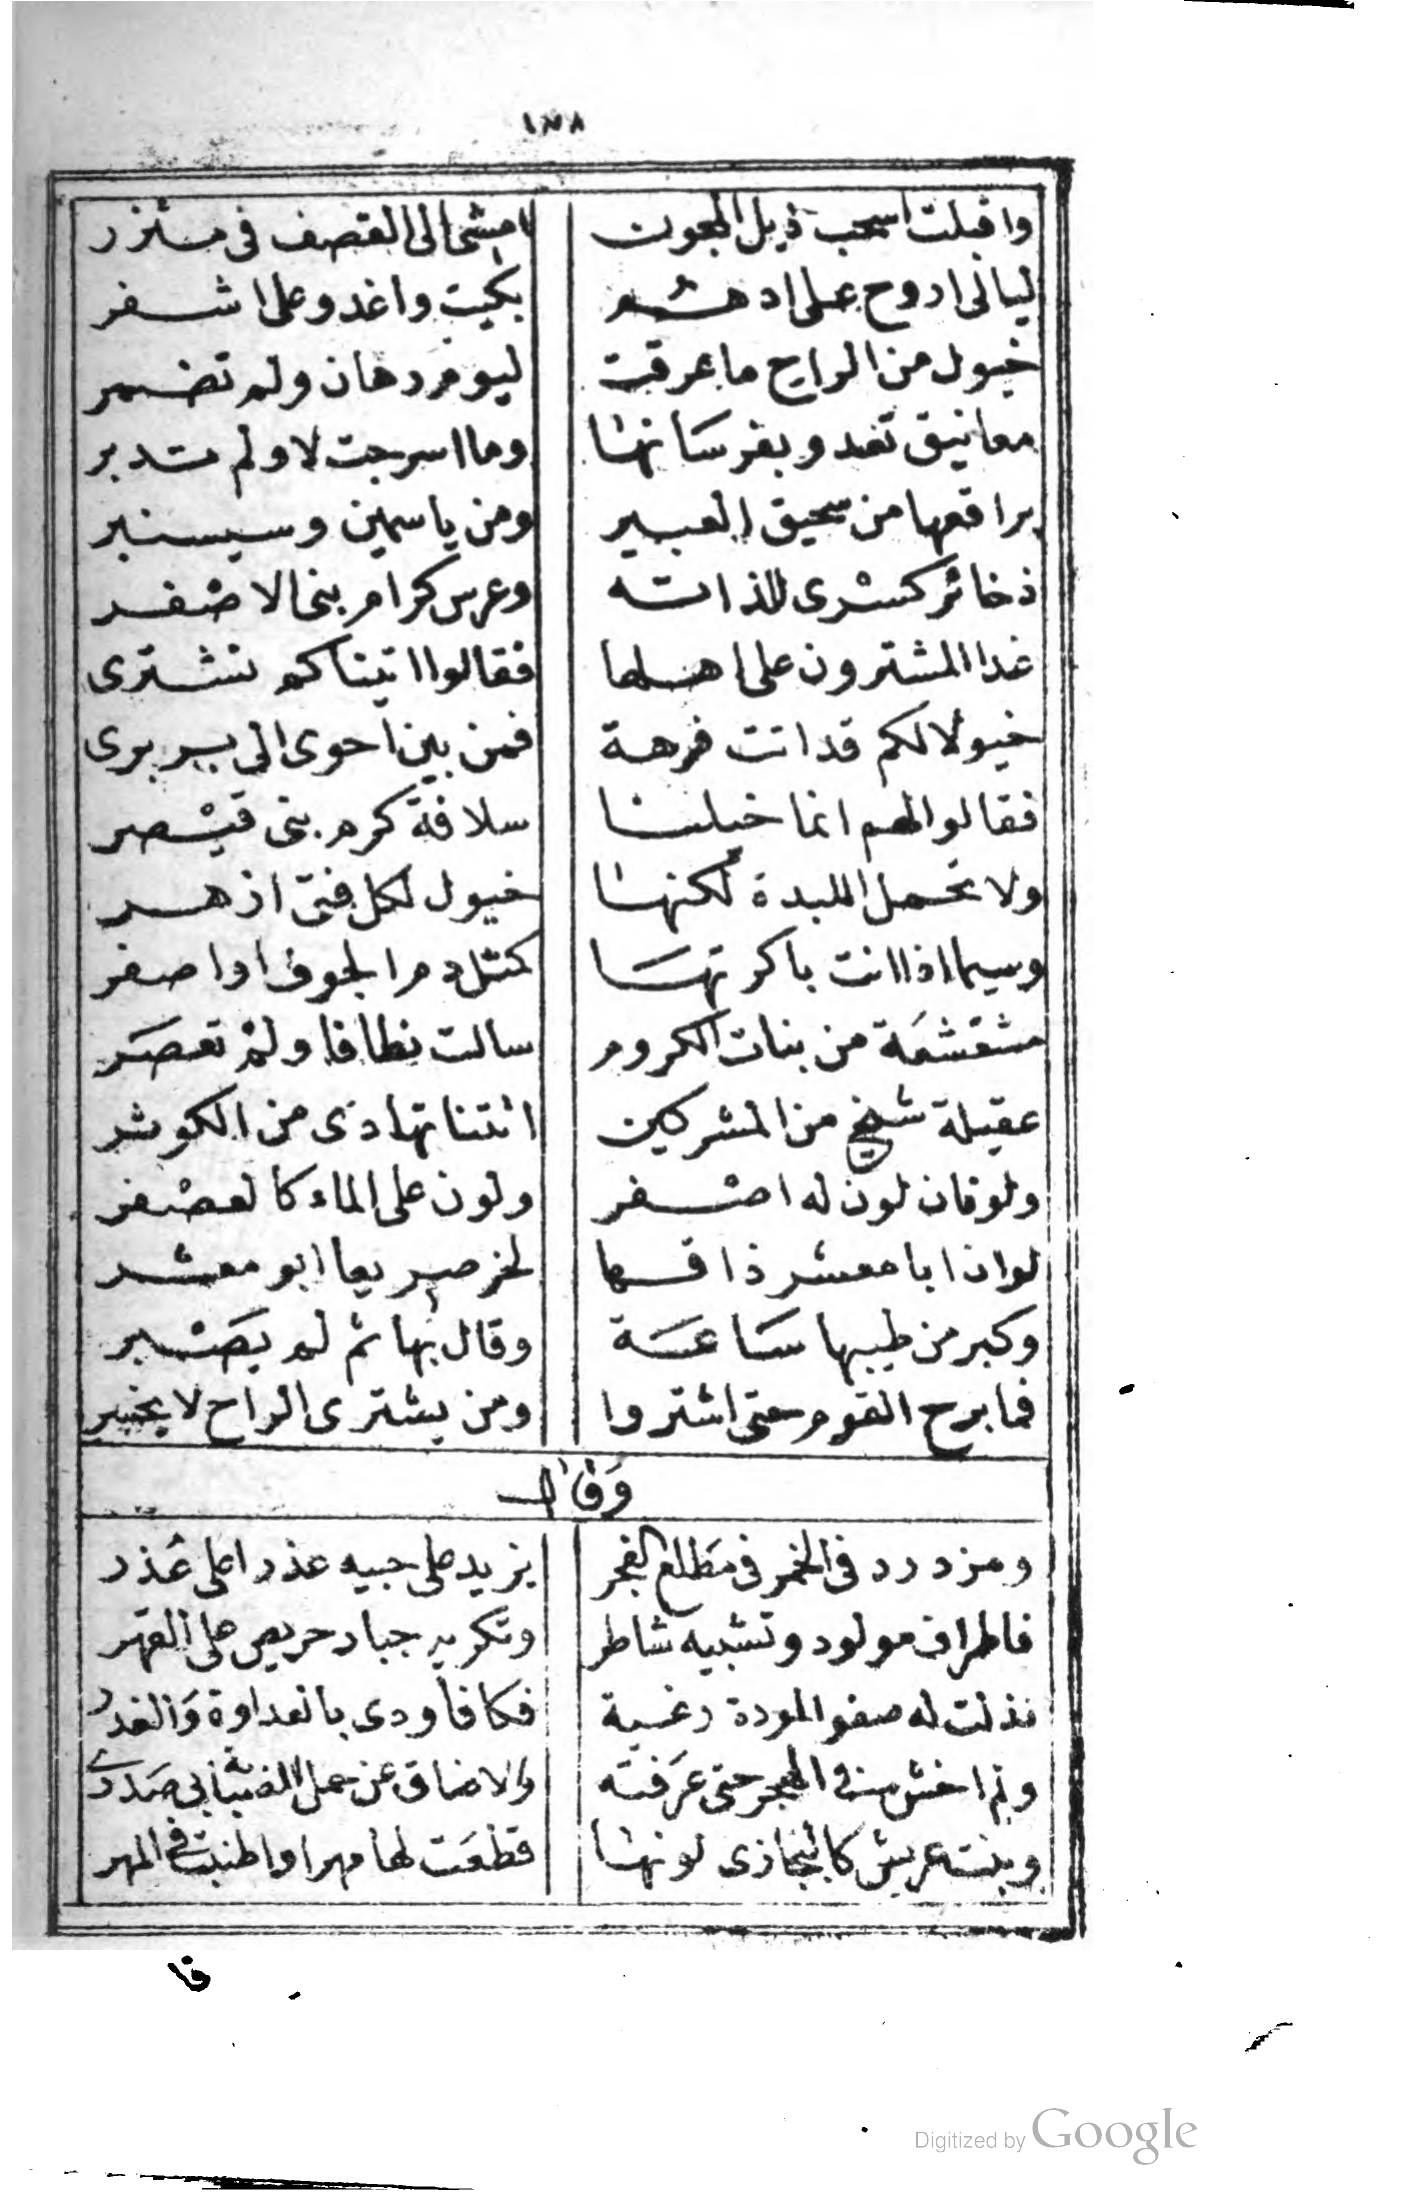 ١٧٨
واقبلت اسحب ذيل المجون امشى الى القصف فى مئزر
ليالى اروح على ادهم بكيت واغدو على اشقر
خيول من الراح ما عرقت ليوم رهان ولم تضمر
معانيق تغدو بفرسانها وما اسرجت لا ولم تدبر
براقعها من سحيق العبير ومن ياسمين وسيسنبر
ذخائر كسرى للذاته وعرس كرام بنى الاصفر
غدا المشترون على اهلها فقالوا اتيناكم نشترى
خيولا لكم قد اتت فرهة فمن بين احوى الى بربرى
فقالوا لهم انما خيلنا سلافة كرم بنى قيصر
ولا تحمل اللبدة لكنها خيول لكل فتى ازهر
وسيما اذا انت باكرتها كمثل دم الجوف او اصفر
مشقشقة من بنات الكروم سالت نطافا ولم تعصر
عقيلة شيخ من المشركين اتتنا تهادى من الكوثر
ولوفان لون له اصفر ولون على الماء كالعصفر
لو ان ابا معشر ذاقها لخر صريعا ابو معشر
وكبر من طيبها ساعة وقال بها ثم لم يصبر
فما برح القوم حتى اشتروا ومن يشترى الراح لا يخسر
وقال
ومزدرد فى الخمر فى مطلع الفجر يزيد على جبيه عذرا على عذر
فاطراف مولود وتشبيه شاطر وتكريه جبار حريص على القهر
بذلت له صفو المودة رغبة فكافا ودى بالعداوة والغدر
ولم اخش منه الهجر حتى عرفته والا ضاق عن حمل الضبابى صدرى
وبنت عريش كالبجاذى لونها قطعت لها مهرا واطنبت فى المهر
فا
Digitized by Google